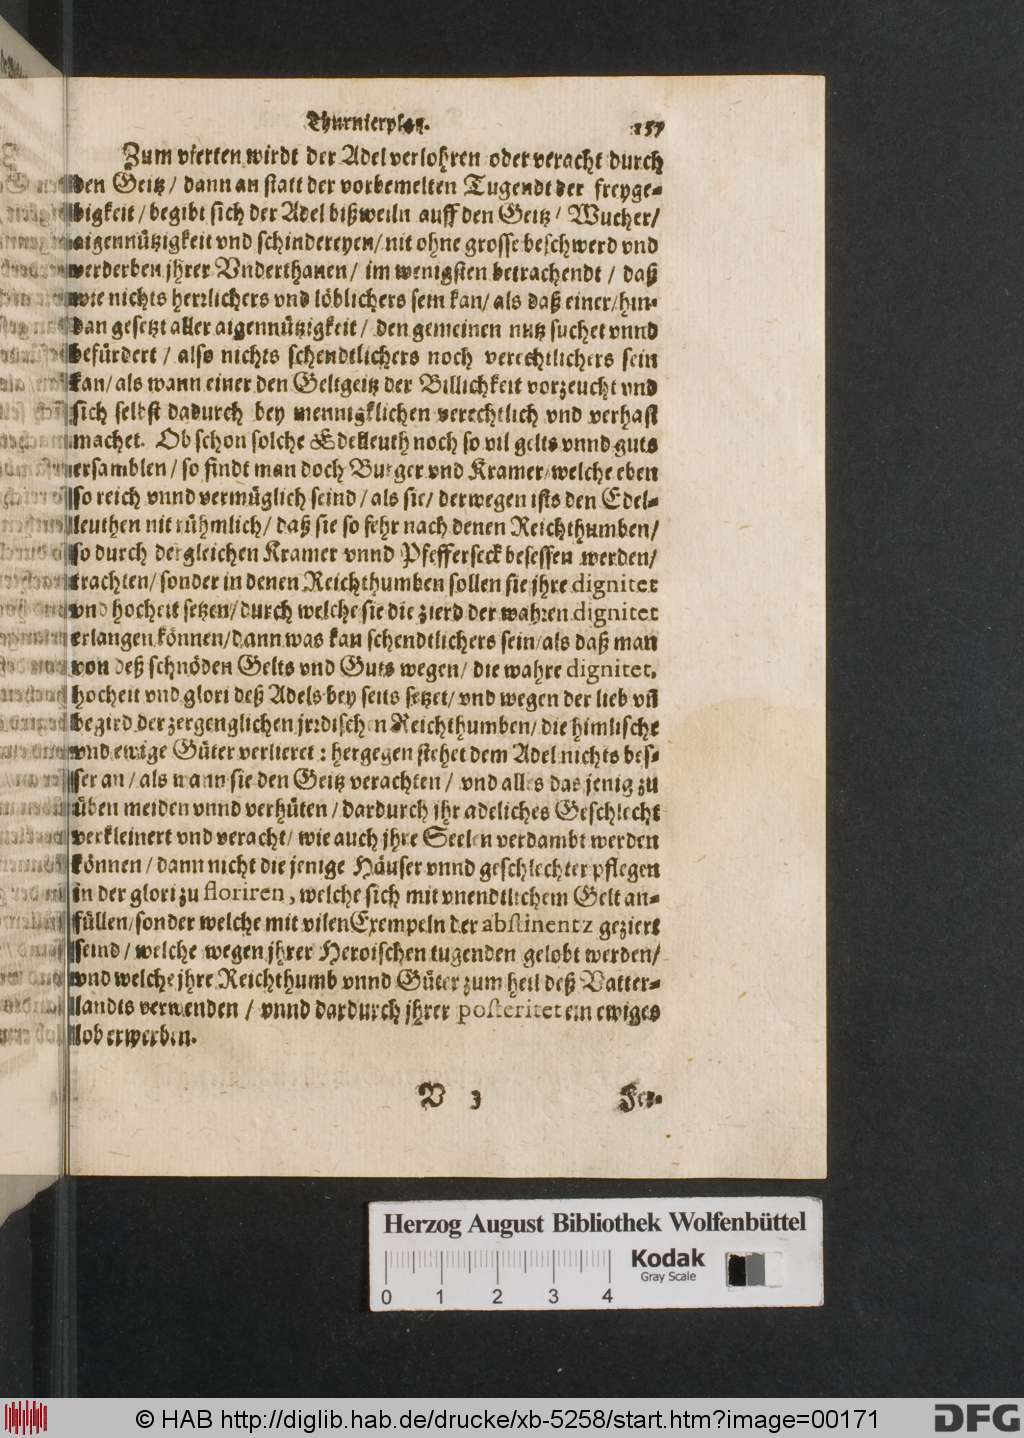 Thurnierplatz. 157
Zum vierten wirdt der Adel verlohren oder veracht durch
den Geitz / dann an statt der vorbemelten Tugendt der freyge-
bigkeit / begibt sich der Adel bißweiln auff den Geitz / Wucher /
aigennützigkeit vnd schindereyen / nit ohne grosse beschwerd vnd
verderben jhrer Vnderthanen / im wenigsten betrachendt / daß
wie nichts herrlichers vnd löblichers sein kan / als daß einer / hin-
dan gesetzt aller aigennützigkeit / den gemeinen nutz suchet vnnd
befürdert / also nichts schendtlichers noch verechtlichers sein
kan / als wann einer den Geltgeitz der Billichkeit vorzeucht vnd
sich selbst dadurch bey mennigklichen verechtlich vnd verhast
machet. Ob schon solche Edelleuth noch so vil gelts vnnd guts
ersamblen / so findt man doch Burger vnd Kramer / welche eben
so reich vnnd vermüglich seind / als sie / derwegen ists den Edel-
leuthen nit rühmlich / daß sie so sehr nach denen Reichthumben /
so durch dergleichen Kramer vnnd Pfefferseck besessen werden /
trachten / sonder in denen Reichthumben sollen sie jhre dignitet
vnd hocheit setzen / durch welche sie die zierd der wahren dignitet
erlangen können / dann was kan schendtlichers sein / als daß man
von deß schnöden Gelts vnd Guts wegen / die wahre dignitet,
hocheit vnd glori deß Adels bey seits setzet / vnd wegen der lieb vñ
begird der zergenglichen jrrdischen Reichthumben / die himlische
vnd ewige Güter verlieret : hergegen stehet dem Adel nichts bes-
ser an / als wann sie den Geitz verachten / vnd alles das jenig zu
üben meiden vnnd verhüten / dardurch jhr adeliches Geschlecht
verkleinert vnd veracht / wie auch jhre Seelen verdambt werden
können / dann nicht die jenige Häuser vnnd geschlechter pflegen
in der glori zu floriren, welche sich mit vnendtlichem Gelt an-
füllen / sonder welche mit vilen Exempeln der abstinentz geziert
seind / welche wegen jhrer Heroischen tugenden gelobt werden /
vnd welche jhre Reichthumb vnnd Güter zum heil deß Vatter-
landts verwenden / vnnd dardurch jhrer posteritet ein ewiges
lob erwerben.
V 3 Fer-
Herzog August Bibliothek Wolfenbüttel
Kodak
Gray Scale
0 1 2 3 4
© HAB http://diglib.hab.de/drucke/xb-5258/start.htm?image=00171
DFG